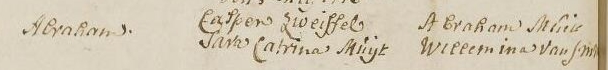 Abraham. Casper Zweiffel Abraham Muijt
Sara Catrina Muijt Willemina van